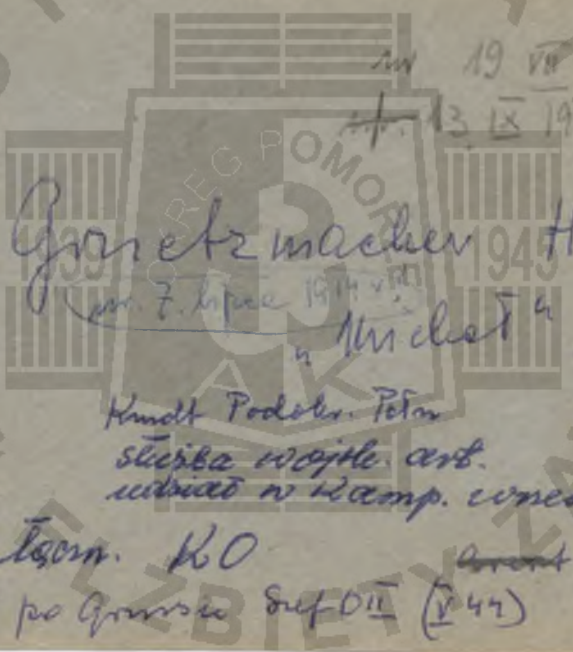 19 VII
13 IX 19
Gruetzmacher H
ur. 7. lipca 1914
"Michał"
Kmdt Podokr. Płn
służba wojsk. art.
udział w kamp. wrześ
łączn. KO
po Grussie Szef OII (V 44)
OKRĘG POMOR
1939
1945
AK
ELŻBIETY ZA